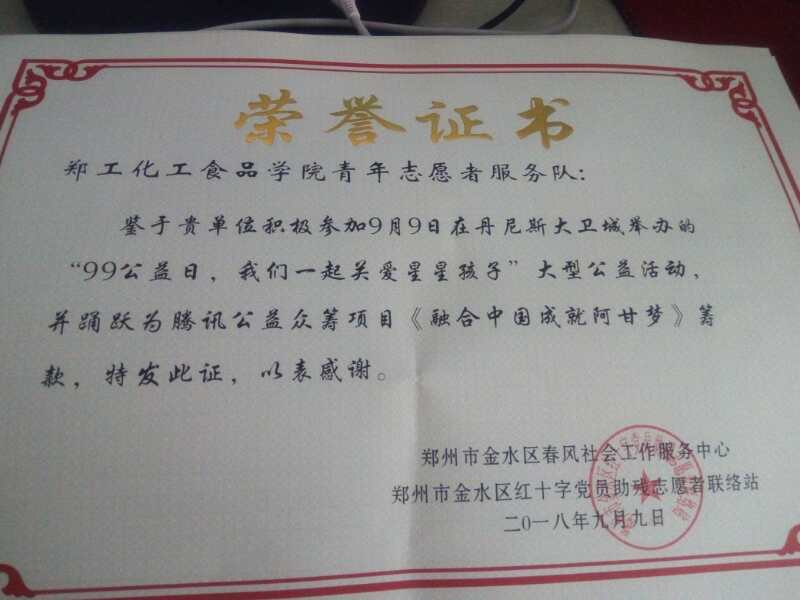 荣誉证书
郑工化工食品学院青年志愿者服务队：
鉴于贵单位积极参加9月9日在丹尼斯大卫城举办的
“99公益日，我们一起关爱星星孩子”大型公益活动，
并踊跃为腾讯公益众筹项目《融合中国成就阿甘梦》筹
款，特发此证，以表感谢。
郑州市金水区春风社会工作服务中心
郑州市金水区红十字党员助残志愿者联络站
二〇一八年九月九日